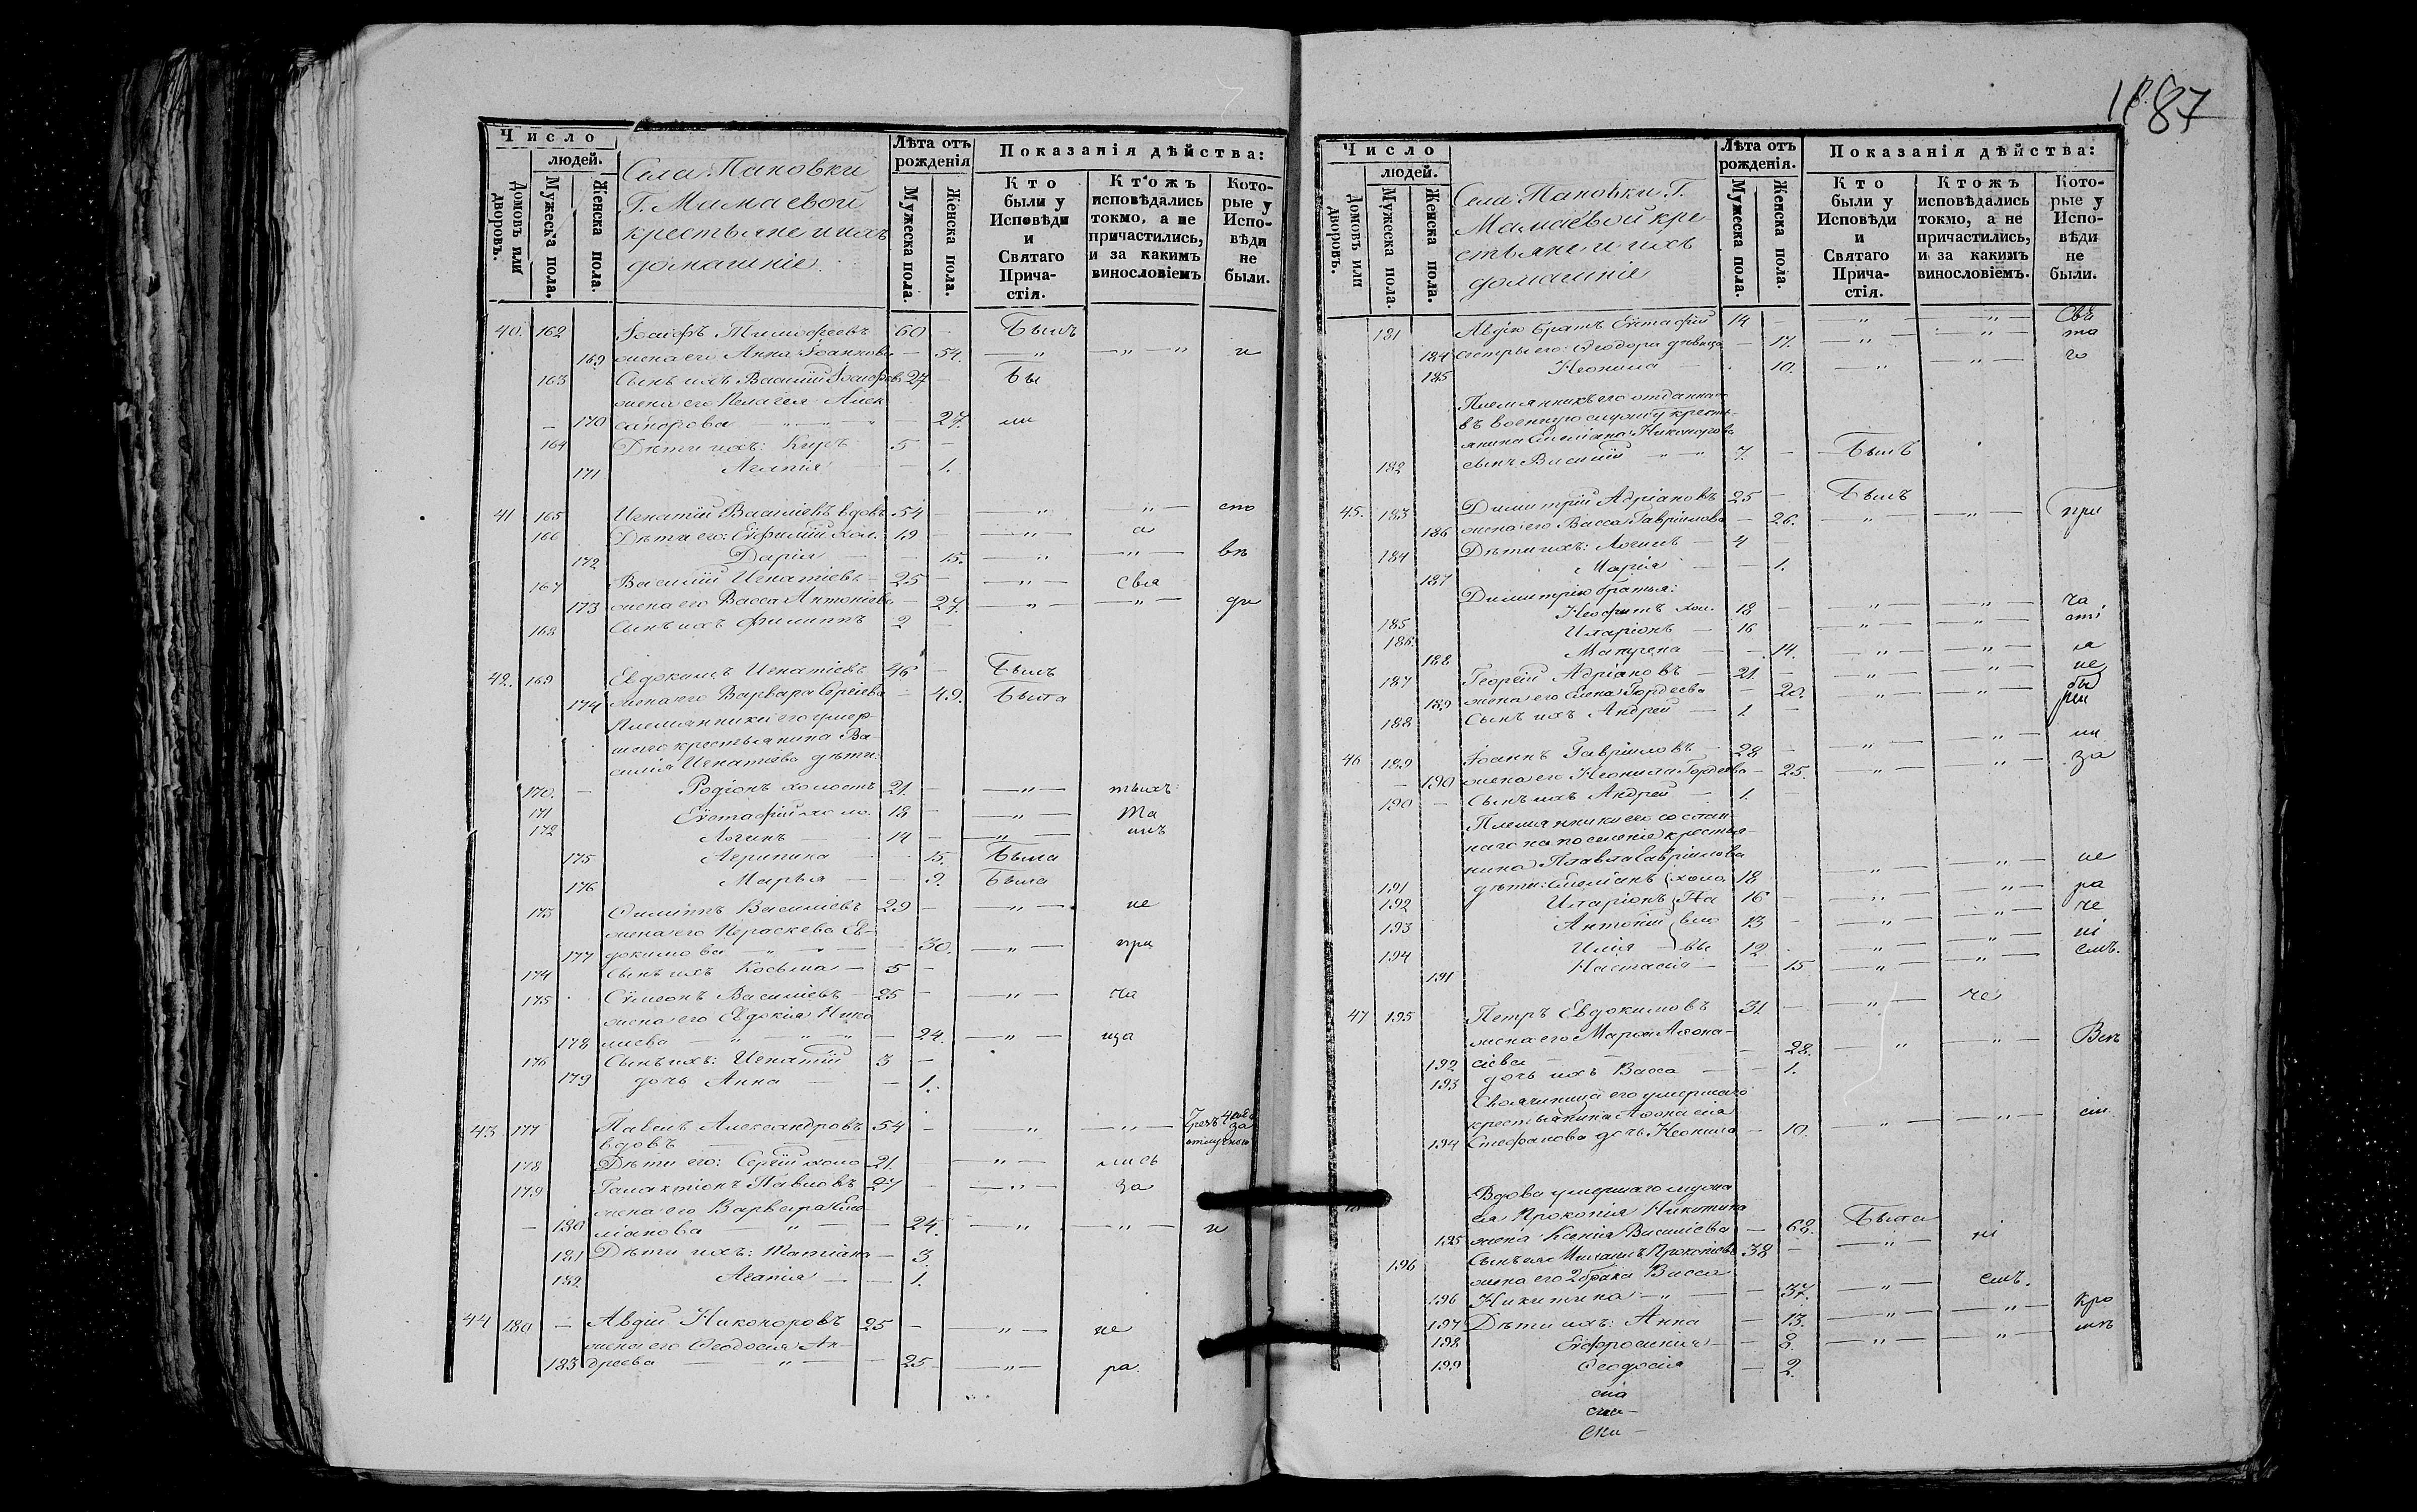 Число
людей.
Домовъ или дворовъ.
Мужеска пола.
Женска пола.
Села Пановки
Г. Мамаевой
крестьяне и ихъ
домашніе.
Лѣта отъ рожденія
Мужеска пола.
Женска пола.
Показанія дѣйства:
Кто были у Исповѣди и Святаго Причастія.
Ктожъ исповѣдались токмо, а не причастились, и за какимъ винословіемъ
Которые у Исповѣди не были.
40. 162 Іосифъ Тимофеевъ 60 - Былъ
169 жена его Анна Іоаннова - 54. — „ — „ — „ и
163 Сынъ ихъ Василій Іосифовъ 27 - Бы
жена его Пелагея Алек
170 сандрова - 27. ли
164 Дѣти ихъ: Киръ 5 -
171 Агапія - 1.
41 165 Игнатій Василіевъ вдовъ 54 - „ „ сто
166 Дѣти его: Евфимій хол. 19 - „ а
172 Дарія - 15. „ „ въ
167 Василій Игнатіевъ 25 - „ свя
173 жена его Васса Антоніева - 27. „ „ ди
168 Сынъ ихъ Филиппъ 2 -
42. 169 Евдокимъ Игнатіевъ 46 - Былъ
174 жена его Варвара Сергіева - 49. Была
Племянники его умер
шаго крестьянина Ва-
силія Игнатіева дѣти:
170. Родіонъ холостъ 21. - „ тыхъ
171 Евстафій холо. 18 - „ Та
172 Логинъ 14 - „ инъ
175 Агрипина - 15. Была
176 Марья - 9. Была
173 Филиппъ Василіевъ 29 - „ не
жена его Параскева Ев-
177 докимова - 30. „ при
174 Сынъ ихъ Косьма 5 -
175 Сѵмеонъ Василіевъ 25 - „ ча
жена его Евдокія Нико
178 лаева - 24. „ ща
176 Сынъ ихъ: Игнатій 3 -
179 дочь Анна - 1.
43 177 Павелъ Александровъ 54 - „ „
вдовъ
178 Дѣти его: Сергій холо 21. - „ лись
179 Галактіонъ Павловъ 27 - „ за
жена его Варвара Еме
180 ліанова - 24. „ „ и
181 Дѣти ихъ: Татіана - 3.
182 Агапія - 1.
44 180 Авдій Никоноровъ 25 - „ не
жена его Ѳеодосія Ан-
183 дреева - 25 „ ра
187
Число
людей.
Домовъ или дворовъ.
Мужеска пола.
Женска пола.
Села Пановки Г.
Мамаевой кре-
стьяне и ихъ
домашніе
Лѣта отъ рожденія.
Мужеска пола.
Женска пола.
Показанія дѣйства:
Кто были у Исповѣди и Святаго Причастія.
Ктожъ исповѣдались токмо, а не причастились, и за какимъ винословіемъ.
Которые у Исповѣди не были.
181 Авдію братъ Евстафій 14 - „ „ Свя
184 сестры его: Ѳеодора дѣвица - 17. „ „ та
185 Неонила - 10. „ „ го
Племянникъ его отданнаго
въ военную службу кресть-
янина Емеліана Никонорова
182 сынъ Василій 7. - Былъ
45. 183 Димитрій Адріановъ 25 - Былъ
186 жена его Васса Гавріилова - 26. „ „ при
184 Дѣти ихъ: Логинъ 4 -
187 Марія - 1.
Димитрію братья:
185 Неофитъ хол. 18 - „ „ ча
186. Иларіонъ 16 „ „ сті
188 Матрена - 14. „ „ я
187 Георгій Адріановъ 21. - „ „ не
189 жена его Елена Гордеева - 20. „ „ бы
188 Сынъ ихъ Андрей 1. -
46 189 Іоаннъ Гавріиловъ 28 - „ „ ли
190 жена его Неонила Гордеева - 25. „ „ за
190 Сынъ ихъ Андрей 1. -
Племянники его сослан
наго на поселеніе крестья-
нина Павла Гавріилова
191 дѣти: Емеліанъ холо 18 „ „ не
192 Иларіонъ Па 16 - „ „ ра
193 Антоній вло 13 - „ „ че
194 Илія вы 12 „ „ ні
191 Настасія - 15 „ „ емъ.
47 195 Петръ Евдокимовъ 31 - „ че
жена его Марѳа Аѳона-
192 сіева - 28. „ „ Вст
193 дочь ихъ Васса - 1.
Своячиница его умершаго
крестьянина Аѳонасія
194 Стефанова дочь Неонила - 10. „ „ сі
Вдова умершаго
Прокопія Никитина
195 жена Ксенія Василіева - 68. Была
196 Сынъ ея Михаилъ Прокопіевъ 38 - „ ні
жена его 2 брака Васса
196 Никитина - 37. „ емъ.
197 Дѣти ихъ: Анна - 13. „ „ кро
198 Евфросинія - 8. „ „
199 Ѳеодосія - 2.